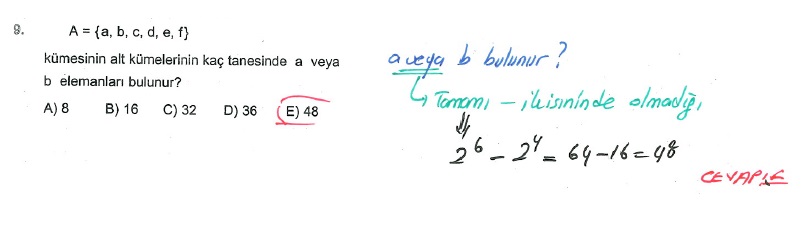 9. A = {a, b, c, d, e, f}
kümesinin alt kümelerinin kaç tanesinde a veya
b elemanları bulunur?
A) 8 B) 16 C) 32 D) 36 E) 48
a veya b bulunur?
↳ Tamamı - ikisininde olmadığı
2⁶ - 2⁴ = 64 - 16 = 48
CEVAP: E